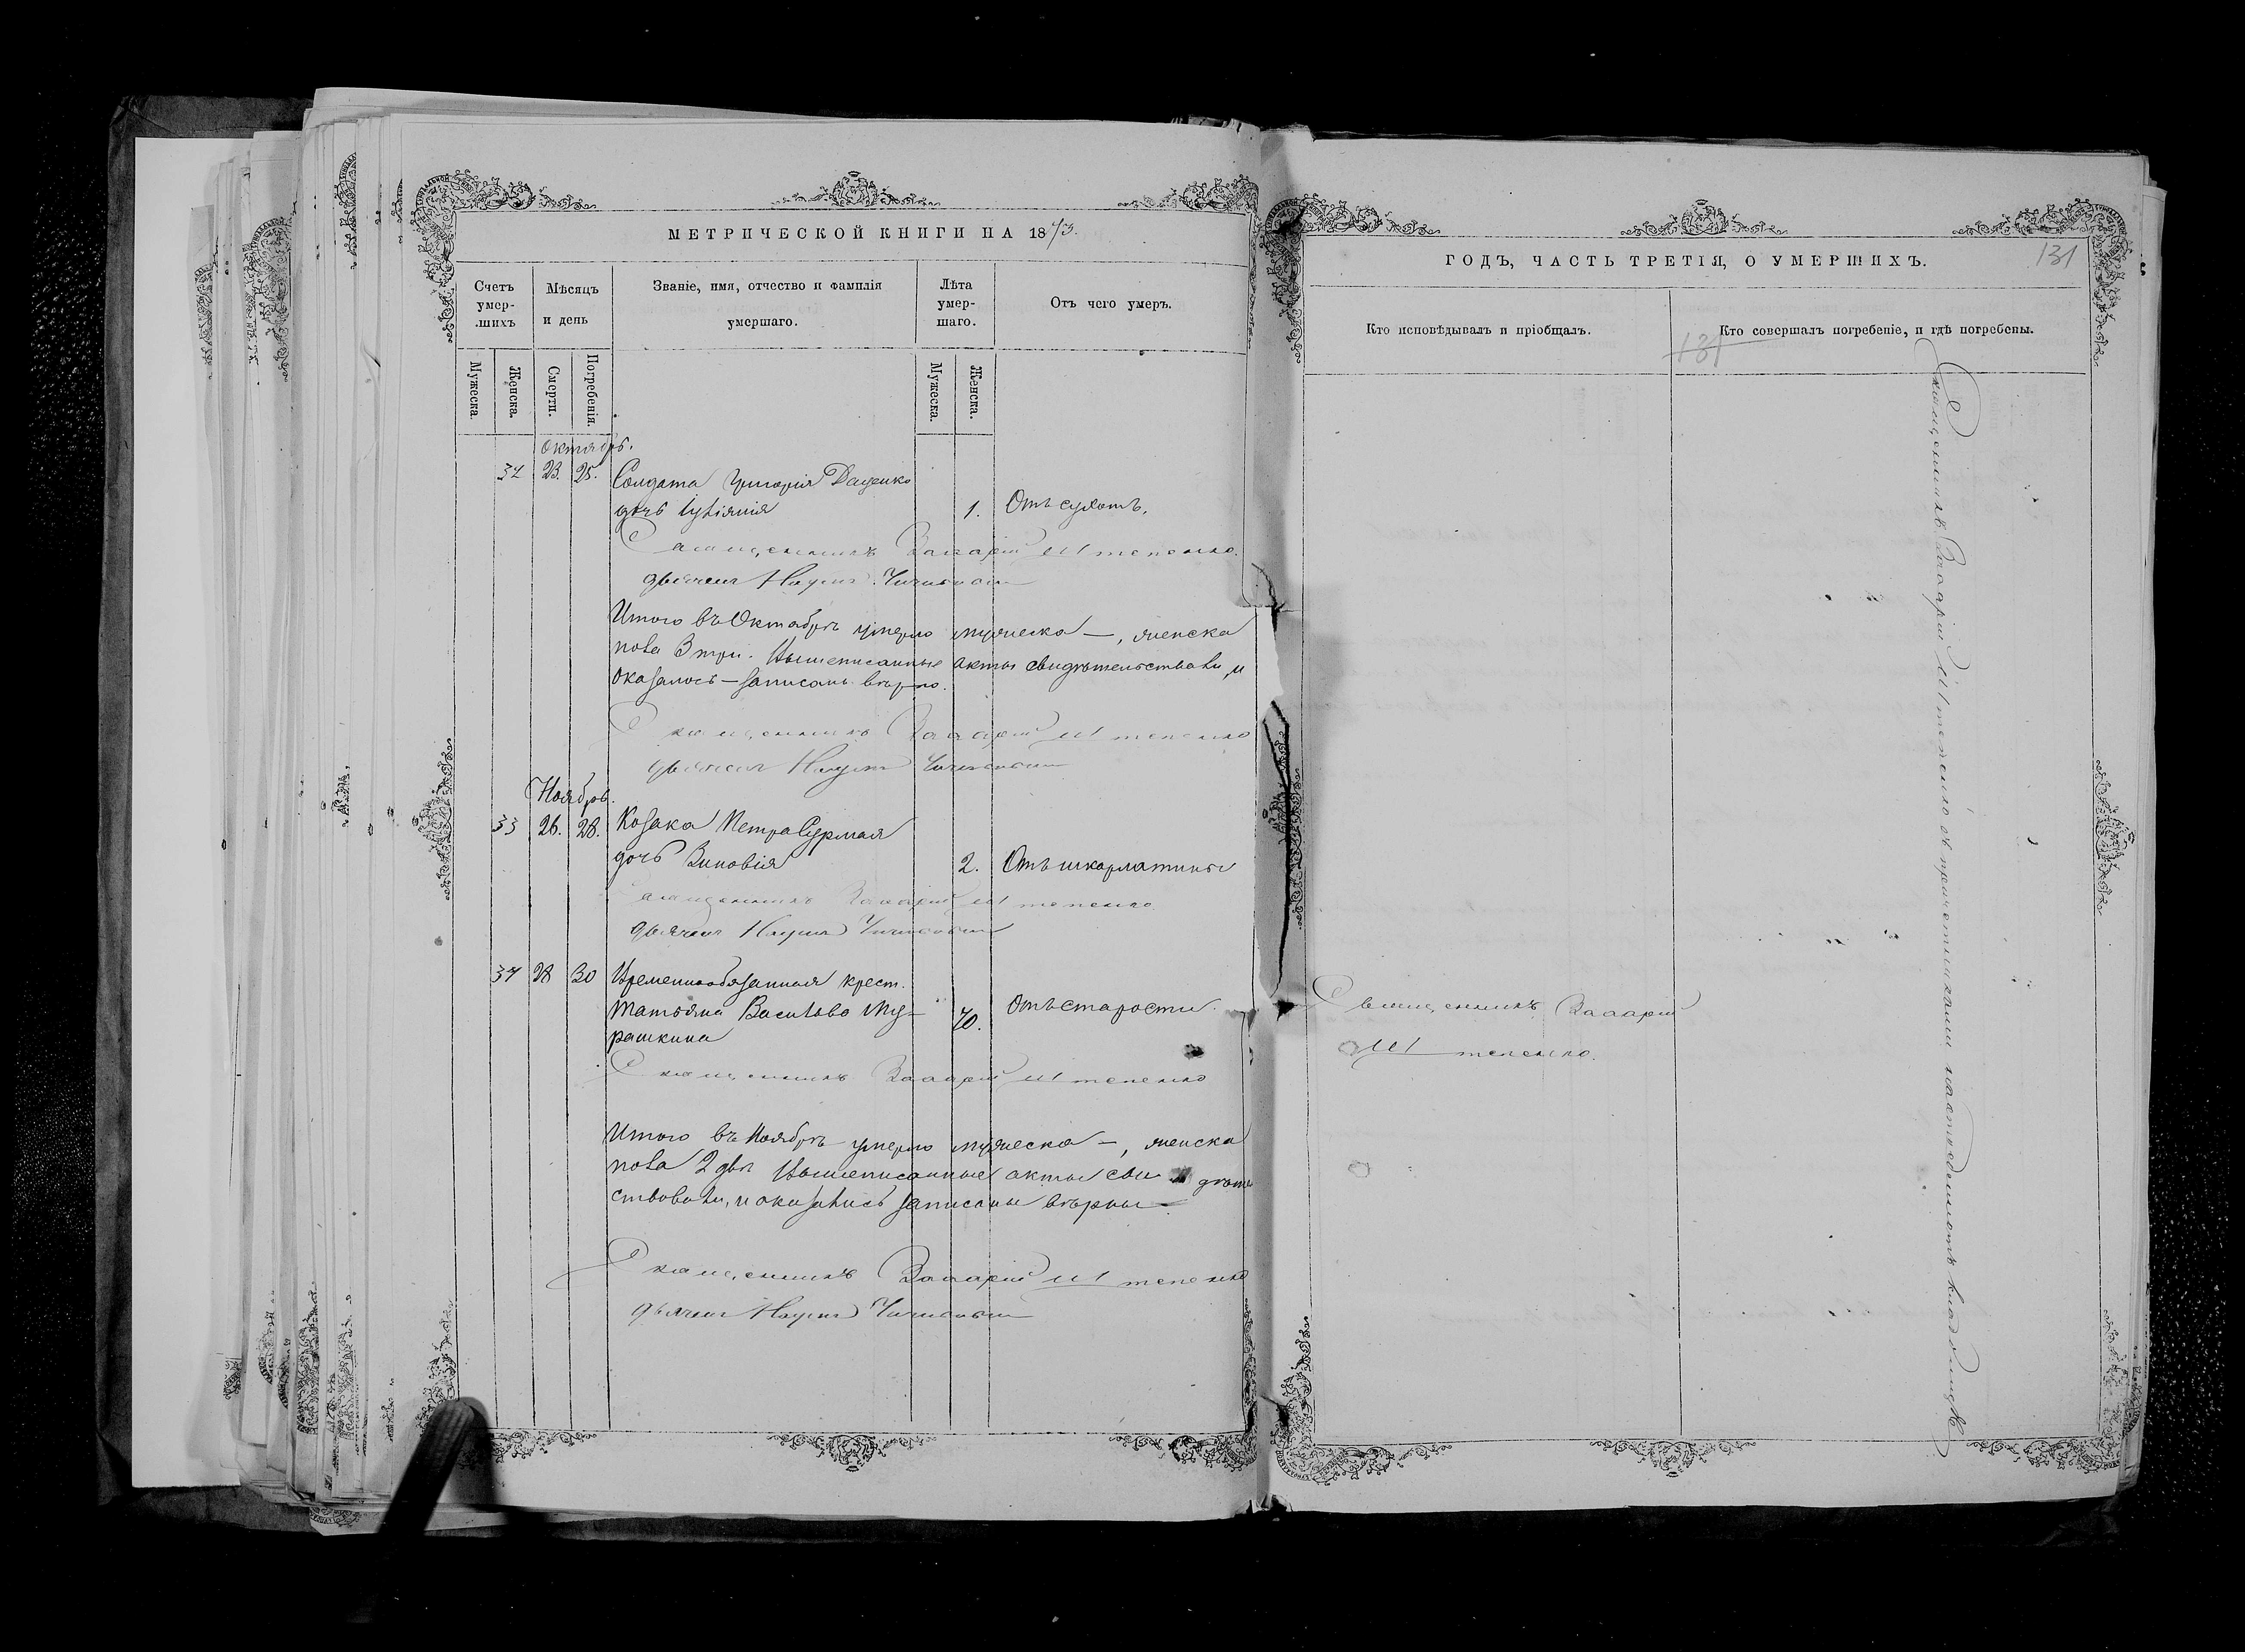 МЕТРИЧЕСКОЙ КНИГИ НА 1873.
Счетъ умер-шихъ
Мѣсяцъ и день
Званіе, имя, отчество и фамилія умершаго.
Лѣта умер-шаго.
Отъ чего умеръ.
Мужеска.
Женска.
Смерти.
Погребенія.
Мужеска.
Женска.
Октябрь.
32 23. 25. Солдата Григорія Даценко
дочь 1. Отъ сухотъ.
Священникъ Захарій Штепенко.
дьячекъ Наумъ
Итого въ Октябрѣ умерло мужеска —, женска
пола 3 три. Вышеписанные акты свидѣтельствовали, и
оказалось — записаны вѣрно.
Священникъ Захарій Штепенко
дьячекъ Наумъ
Ноябрь.
33 26. 28. Козака Петра Сурмая
дочь Зиновія 2. Отъ шкарлатины
Священникъ Захарій Штепенко
дьячекъ Наумъ
34 28 30 Временнообязанная крест.
Татьяна Васильева Му-
рашкина 70. Отъ старости.
Священникъ Захарій Штепенко
Итого въ Ноябрѣ умерло мужеска —, женска
пола 2 двѣ Вышеписанные акты сви дѣтель
ствовали, и оказались записаны вѣрны
Священникъ Захарій Штепенко
дьячекъ Наумъ
ГОДЪ, ЧАСТЬ ТРЕТІЯ, О УМЕРШИХЪ.
131
Кто исповѣдывалъ и пріобщалъ.
Кто совершалъ погребеніе, и гдѣ погребены.
131
Священникъ Захарій
Штепенко.
Священникъ Захарій Штепенко съ причетниками на кладбищѣ